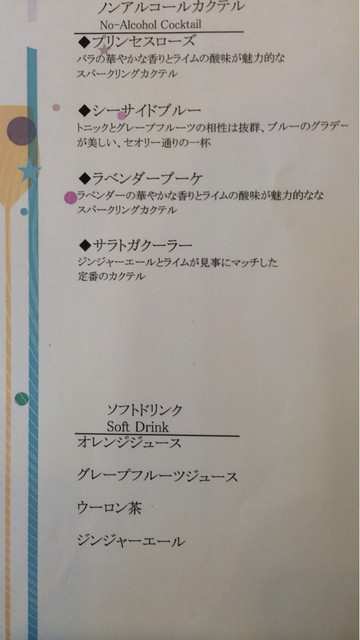 ノンアルコールカクテル
No-Alcohol Cocktail
◆プリンセスローズ
バラの華やかな香りとライムの酸味が魅力的な
スパークリングカクテル
◆シーサイドブルー
トニックとグレープフルーツの相性は抜群、ブルーのグラデー
が美しい、セオリー通りの一杯
◆ラベンダーブーケ
ラベンダーの華やかな香りとライムの酸味が魅力的なな
スパークリングカクテル
◆サラトガクーラー
ジンジャーエールとライムが見事にマッチした
定番のカクテル
ソフトドリンク
Soft Drink
オレンジジュース
グレープフルーツジュース
ウーロン茶
ジンジャーエール